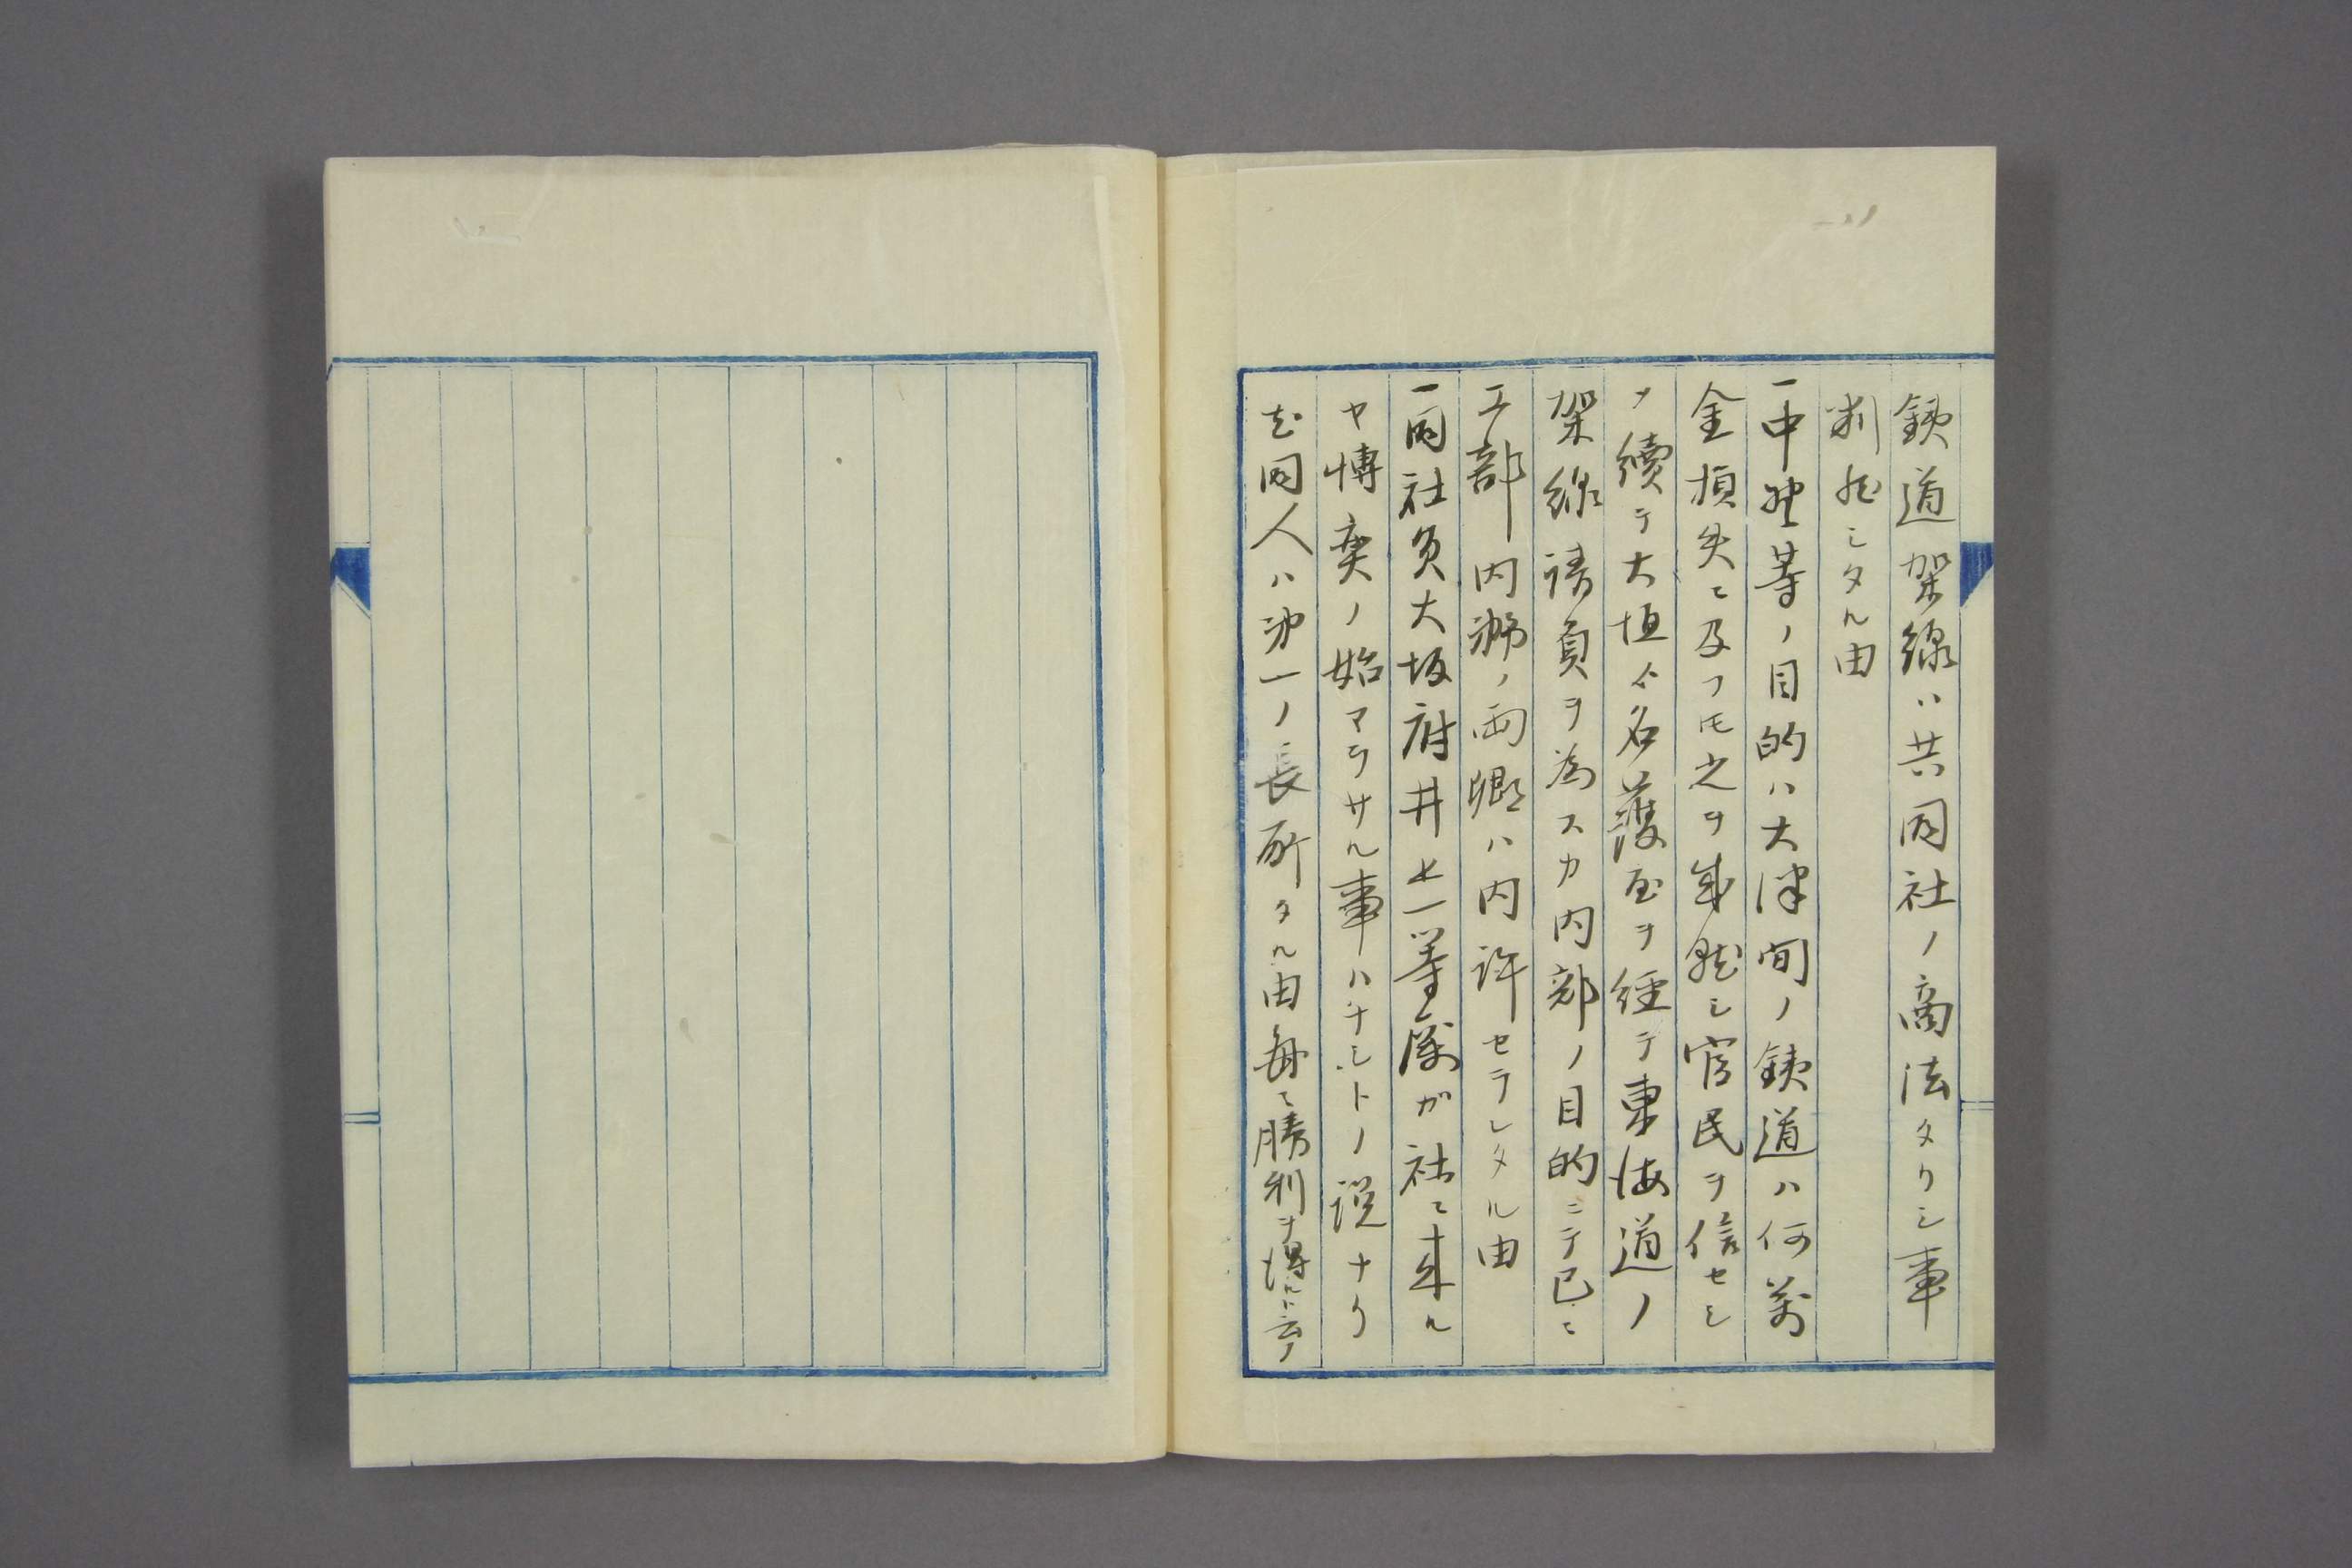 鉄道架線ハ共同社ノ商法タリシ事
判然シタル由
一中野等ノ目的ハ大津間ノ鉄道ハ何万
金損失ニ及フモ之ヲ成就シ官民ヲ信セシ
メ続テ大垣ゟ名護屋ヲ経テ東海道ノ
架線請負ヲ為スカ内部ノ目的ニテ已ニ
工部内務ノ両卿ハ内許セラレタル由
一同社員大坂府井上一等属が社ニ来ル
ヤ博奕ノ始マラサル事ハナシトノ説ナリ
尤同人ハ第一ノ長所タル由毎ニ勝利ヲ得ルト云フ